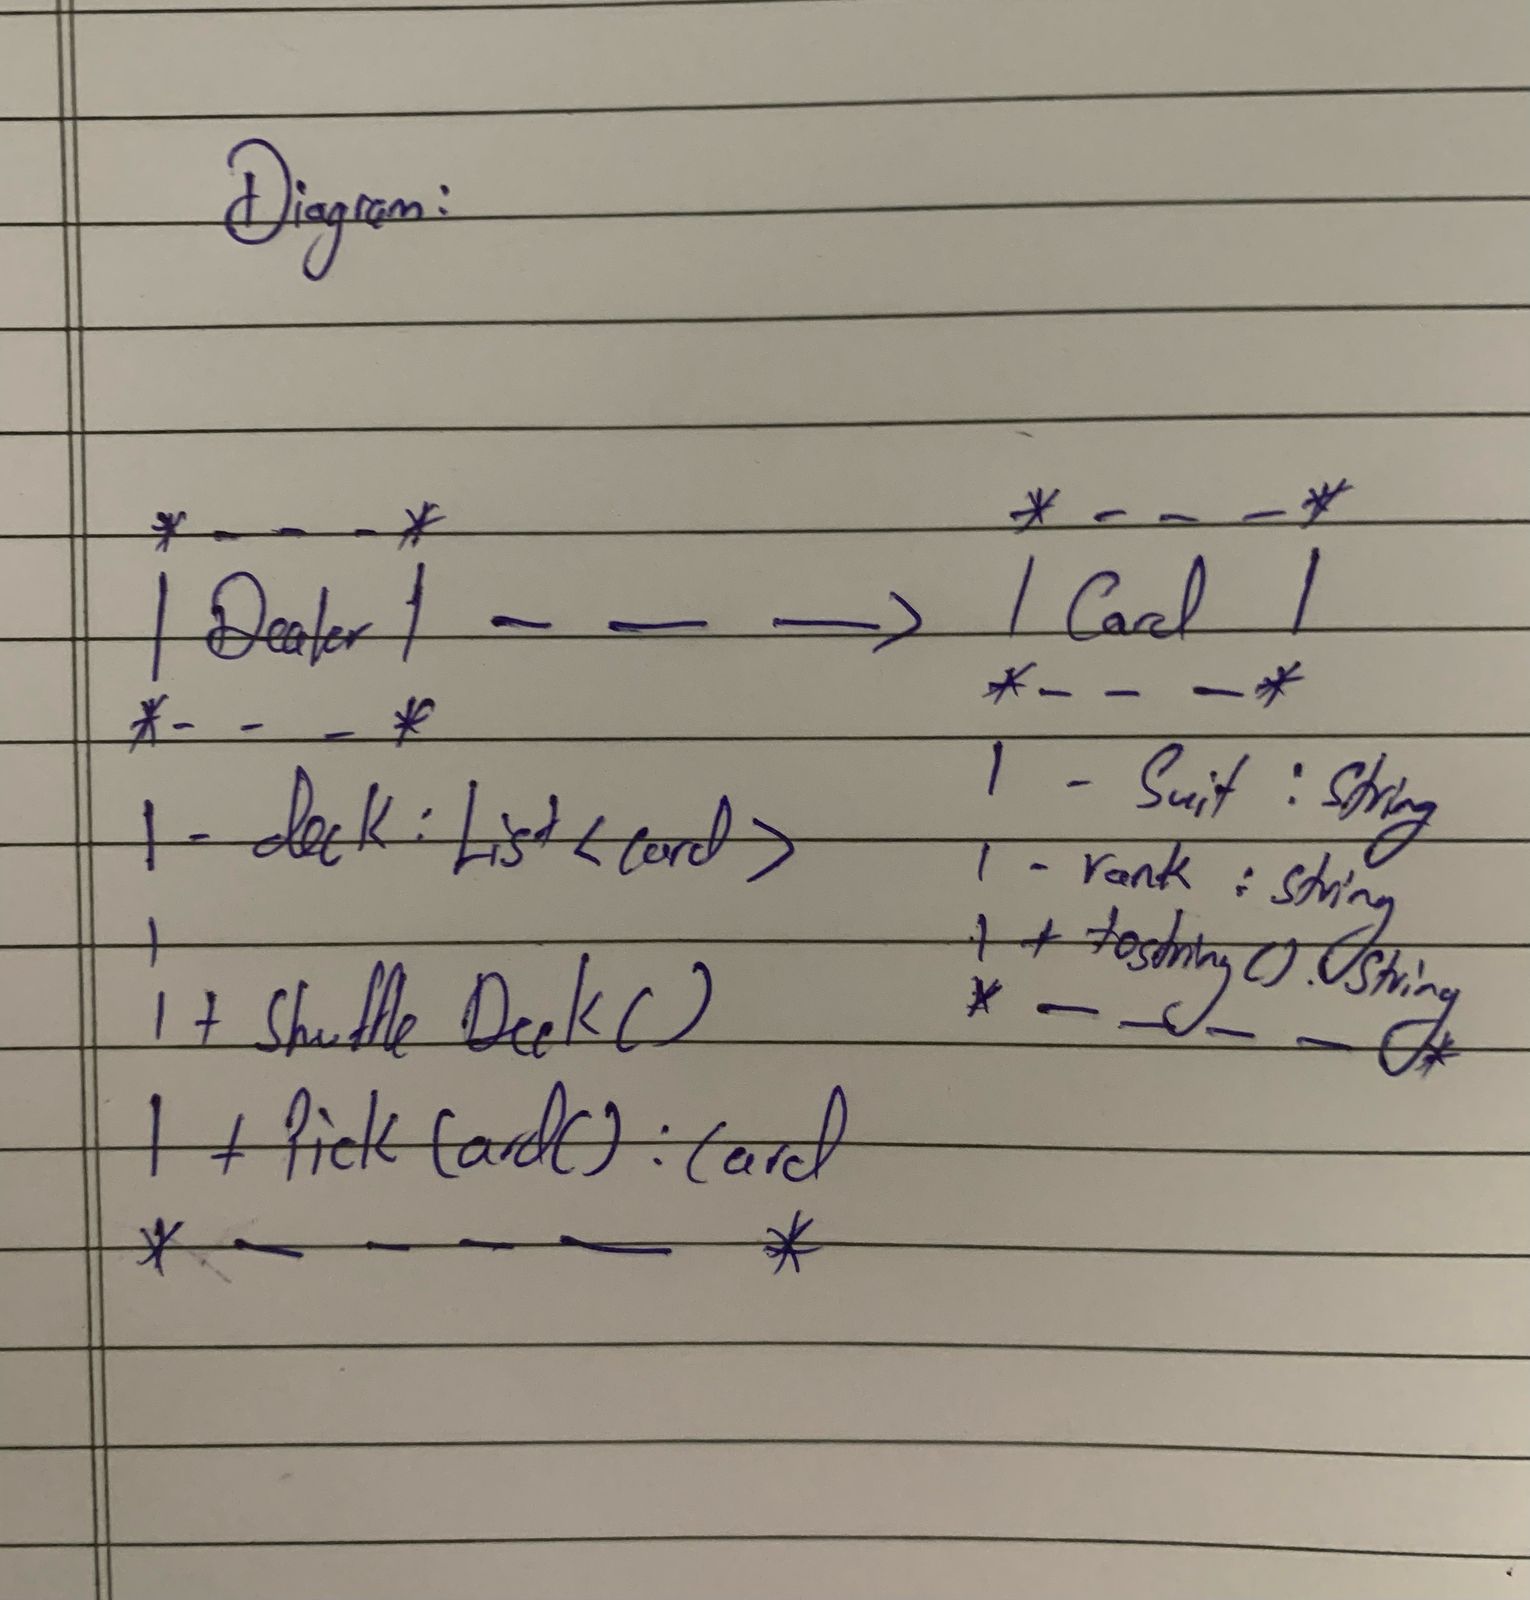 Diagram:
*---*
| Dealer | ---> 
*---*
|- deck: List<Card>
|
|+ Shuffle Deck()
|+ Pick Card(): Card
*----*
*---*
| Card |
*---*
|- Suit: String
|- rank: string
|+ tostring(): String
*----*